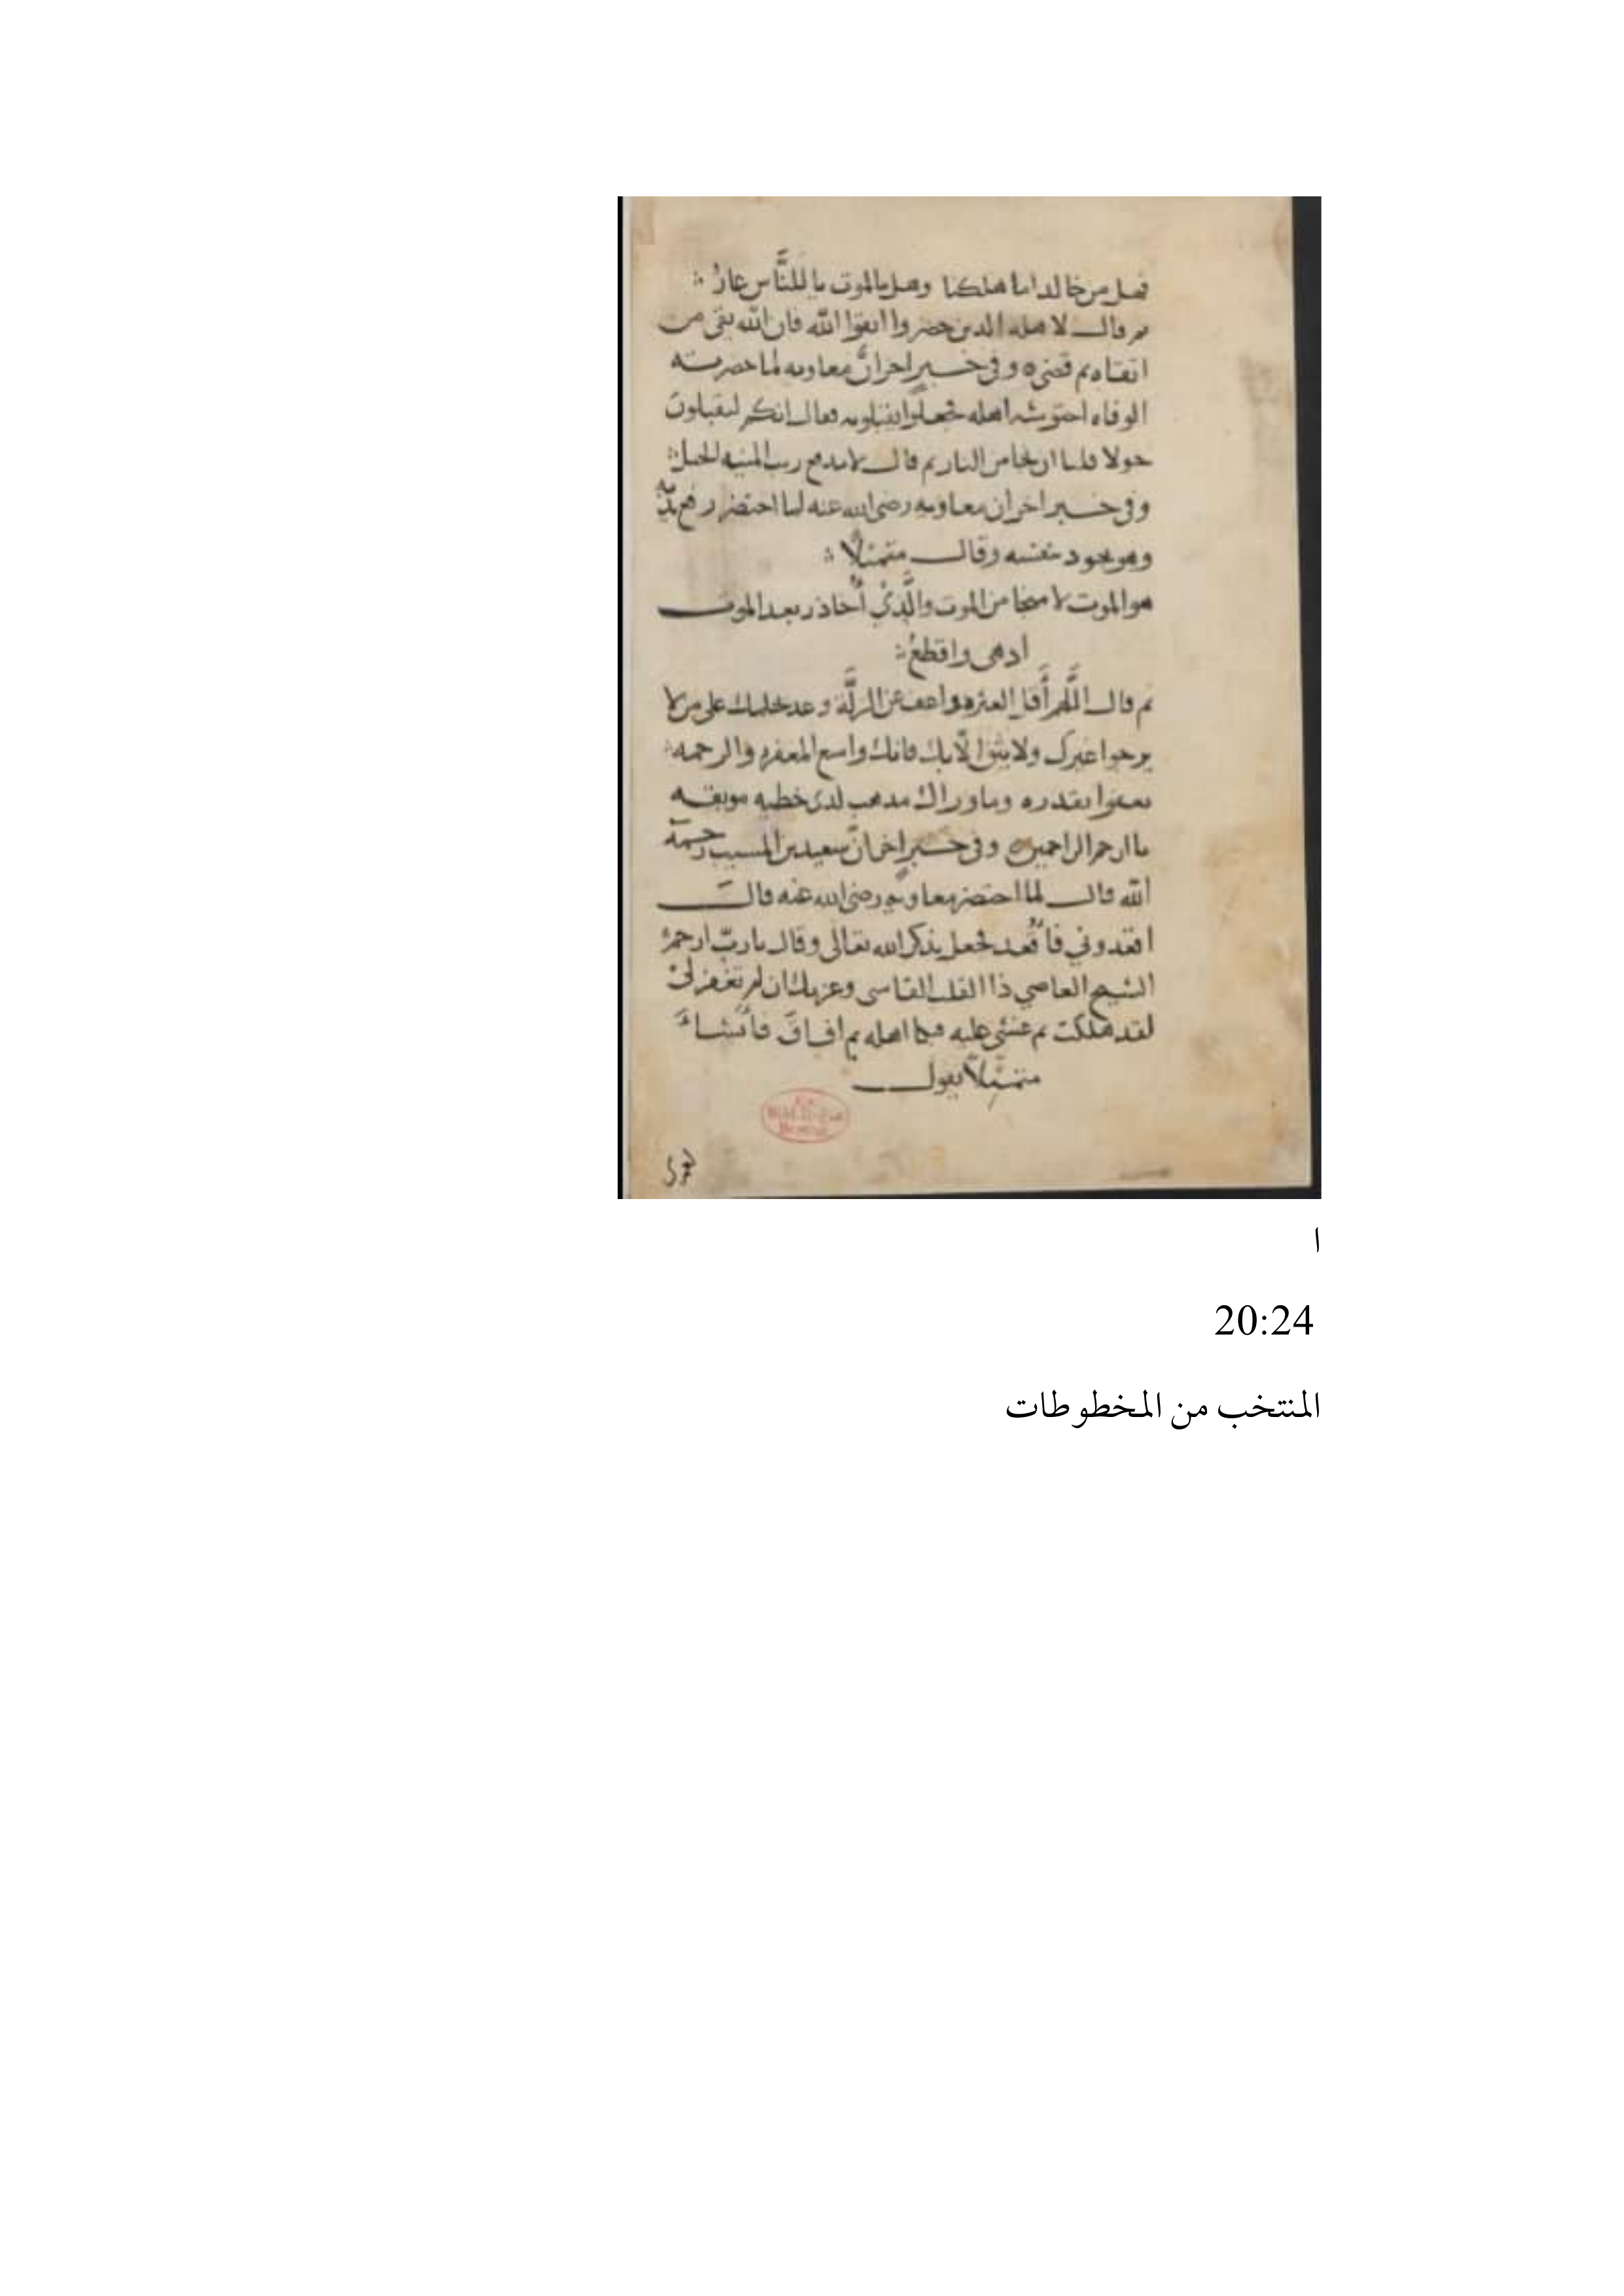 فهل من خالد اما هلكنا وهل بالموت يا للنَّاس عارُ
ثم قال لاهله الذين حضروا اتقوا الله فان الله يقي من
اتقاه ثم قضى وفي خبرٍ اخر انَّ معاويه لما حضرته
الوفاه احتوشه اهله فجعلوا يقبلونه فقال انكم لتقبلون
حولا قلبا ان نجا من النار ثم قال لا يدفع ريب المنيه الحيل
وفي خبر اخر ان معاويه رضى الله عنه لما احتضر رفع يديه
وهو يجود بنفسه وقال متمثلًا
هو الموت لا منجا من الموت والَّذِي أُحاذر بعد الموت
ادهى واقطعُ
ثم قال اللَّهم أَقل العثره واعف عن الزلَّة وعد بحلمك على من لا
يرجوا غيرك ولا يثق الّا بك فانك واسع المغفره والرحمه
تعفوا بقدره وما وراك مذهب لذى خطيه موبقه
يا ارحم الراحمين وفي خبرٍ اخر انَّ سعيد بن المسيب رحمة
الله قال لما احتضر معاويه رضى الله عنه قال
اقعدوني فأُقعد فجعل يذكر الله تعالى وقال يا ربّ ارحم
الشيخ العاصي ذا القلب القاسى وعزتك ان لم تغفر لى
لقد هلكت ثم غشى عليه فبكا اهله ثم افاقَ فأنشاءَ
متمثِّلًا يقول
ا
20:24
المنتخب من المخطوطات